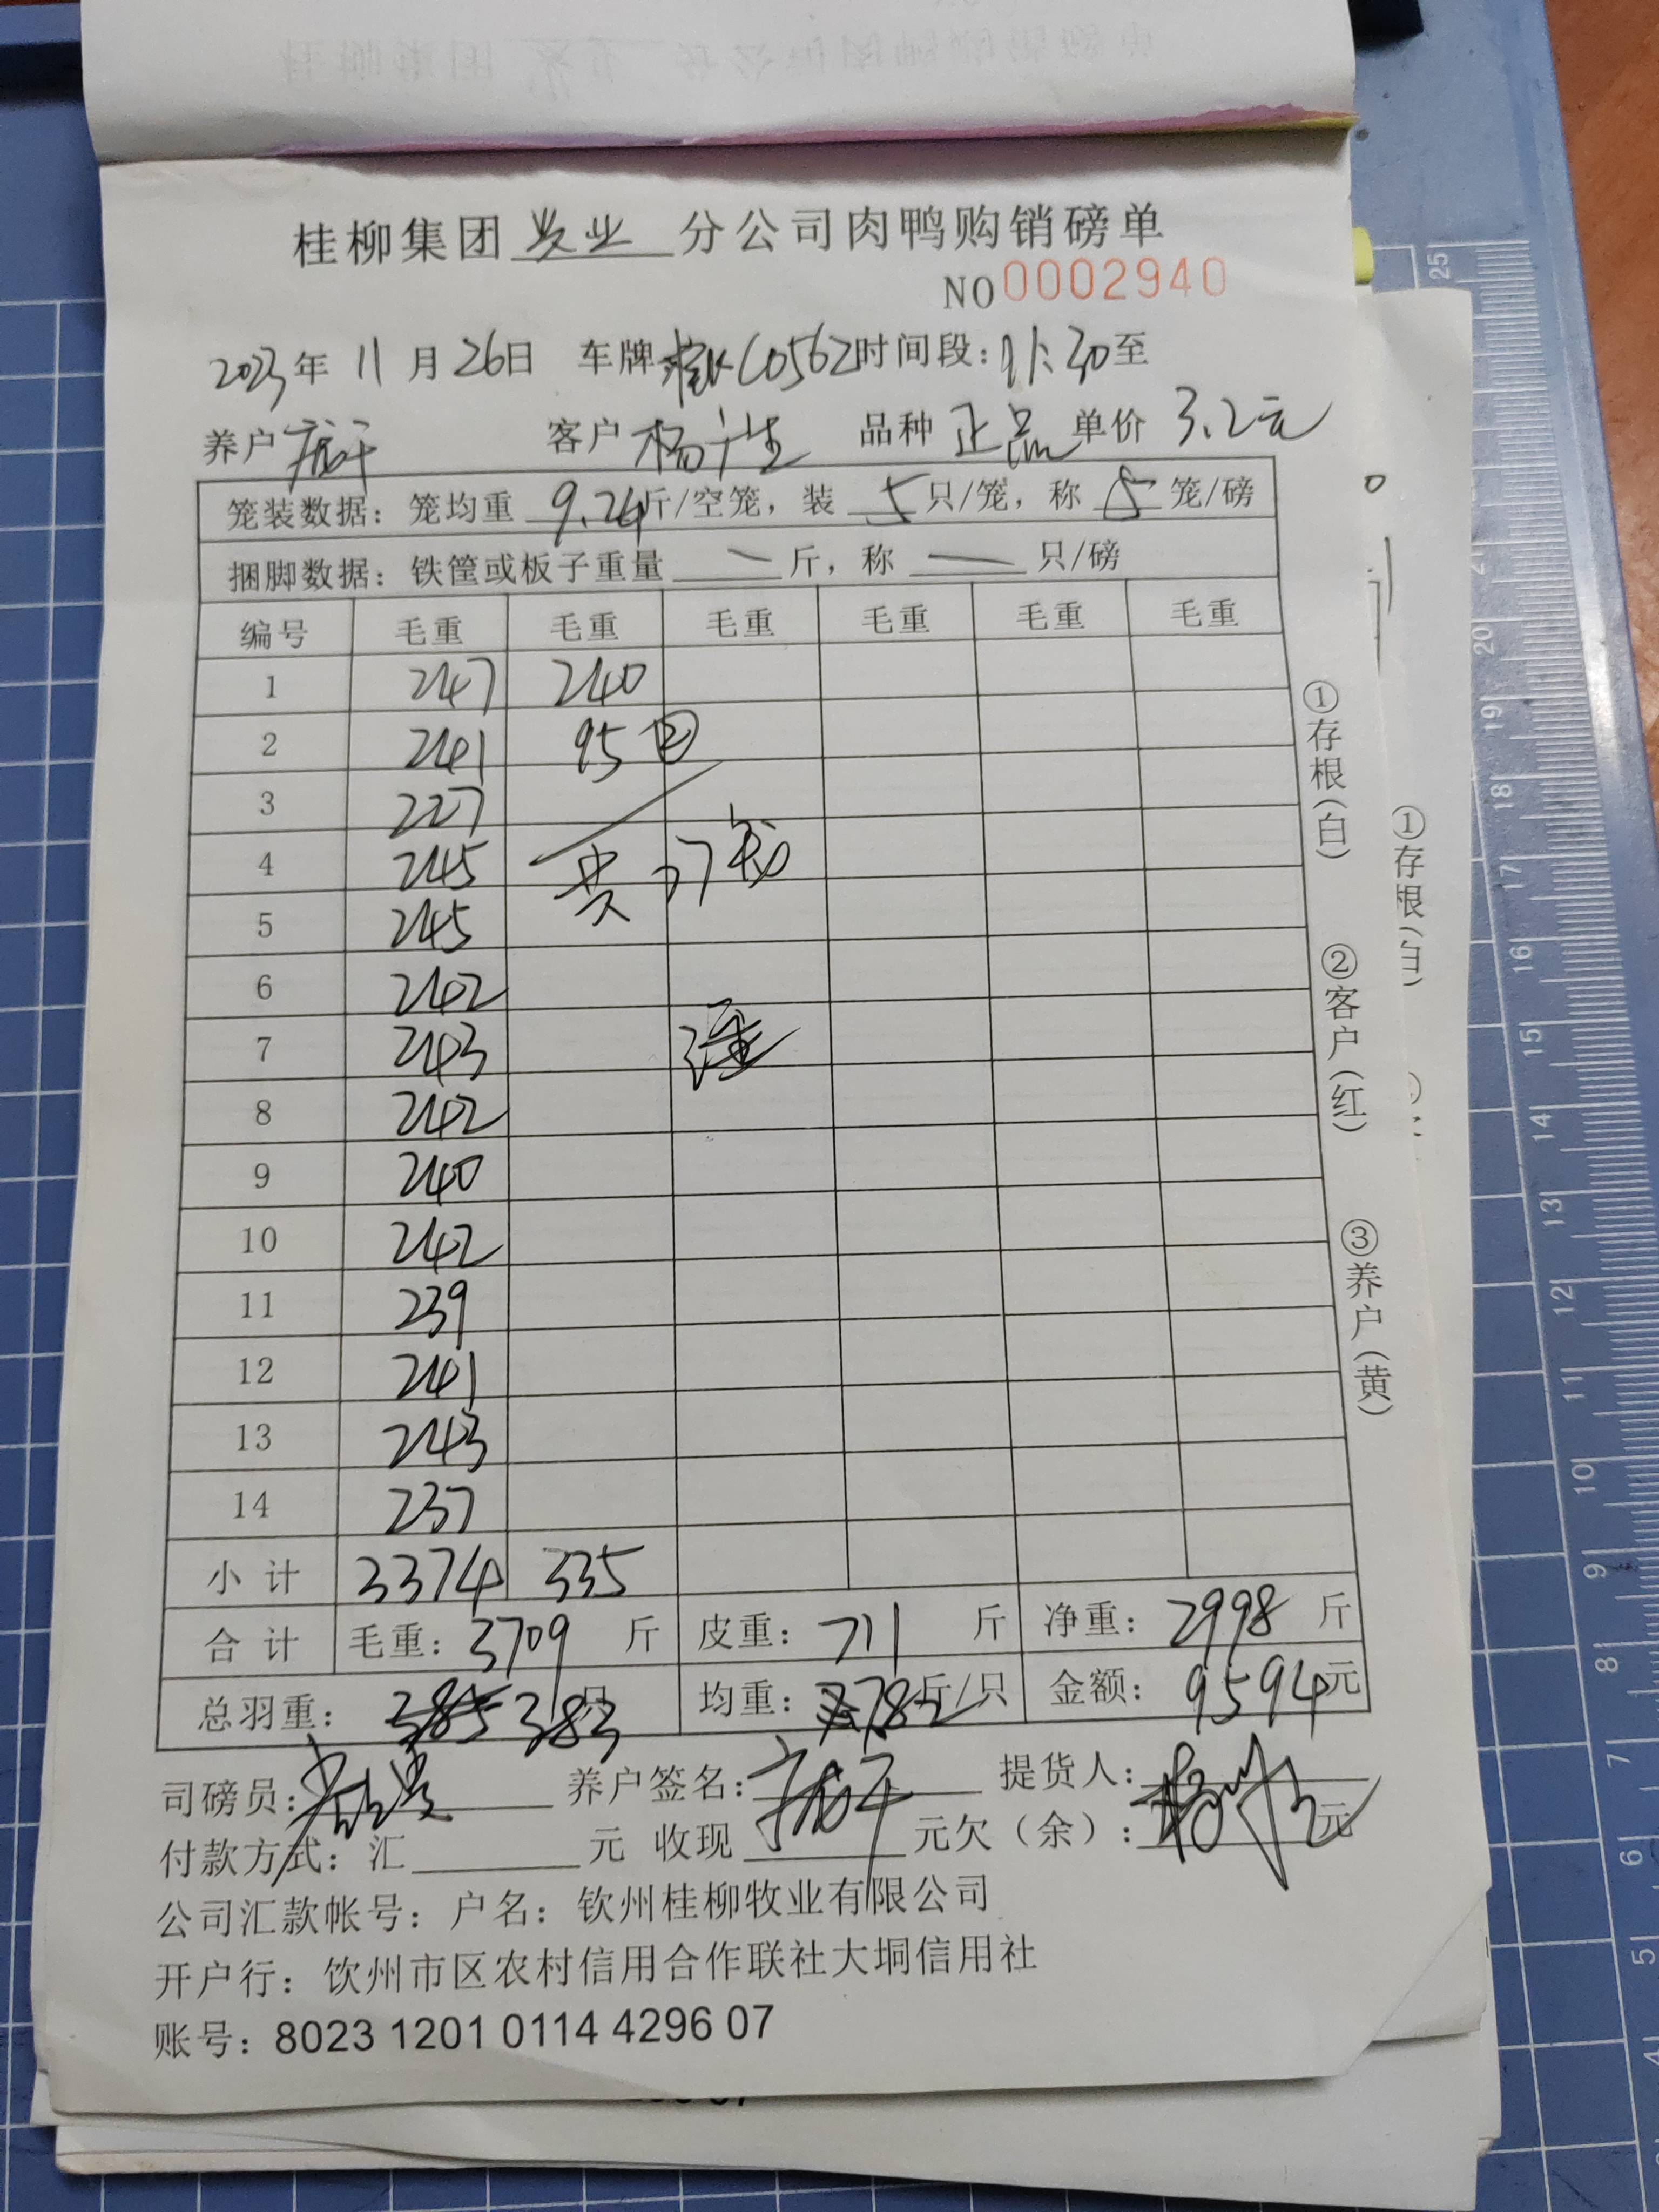 桂柳集团 农业 分公司肉鸭购销磅单
NO 0002940
2023年 11月26日 车牌 C0562 时间段: 11:30 至
养户 客户 杨 品种 正品 单价 3.2元
笼装数据: 笼均重 9.24 斤/空笼, 装 5 只/笼, 称 5 笼/磅
捆脚数据: 铁筐或板子重量 — 斤, 称 — 只/磅
编号 毛重 毛重 毛重 毛重 毛重 毛重
1 247 240
2 241 95 ②
3 227
4 245 共77笼
5 245
6 242
7 243
8 242
9 240
10 242
11 239
12 241
13 243
14 237
小计 3374 335
合计 毛重: 3709 斤 皮重: 711 斤 净重: 2998 斤
总羽重: 385 383 只 均重: 7.82 斤/只 金额: 9594 元
司磅员: 养户签名: 提货人:
付款方式: 汇 元 收现 元欠(余): 元
公司汇款帐号: 户名: 钦州桂柳牧业有限公司
开户行: 饮州市区农村信用合作联社大垌信用社
账号: 8023 1201 0114 4296 07
①存根(白) ②客户(红) ③养户(黄)
①存根(白)
25
21
20
19
18
17
16
15
14
13
12
11
10
9
8
7
6
5
4